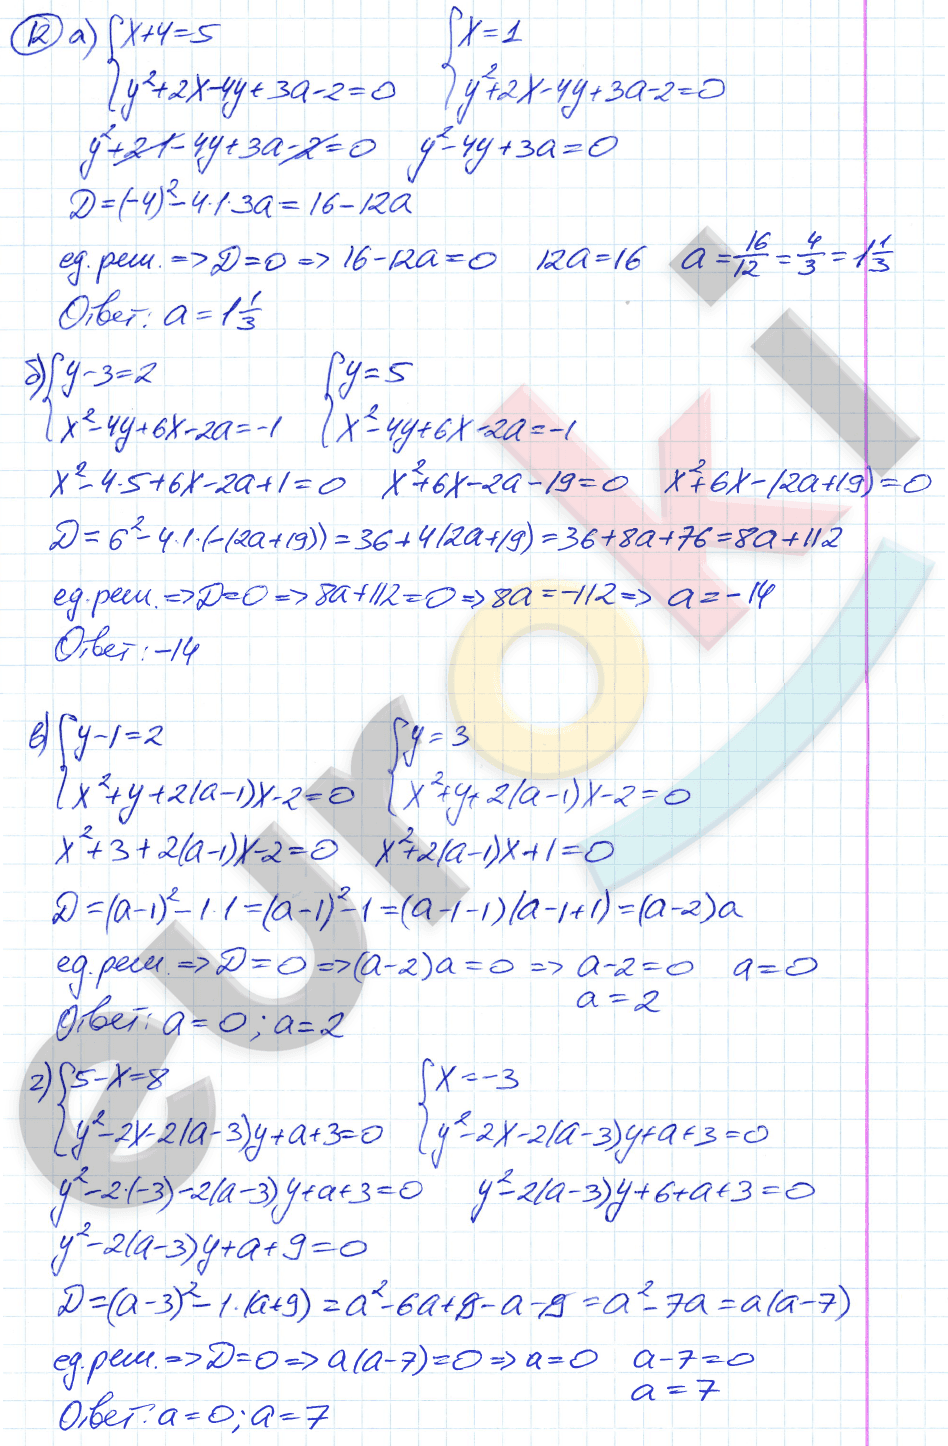 12 а) { x+4=5 { x=1
y²+2x-4y+3a-2=0 y²+2x-4y+3a-2=0
y²+2·1-4y+3a-2=0 y²-4y+3a=0
D=(-4)²-4·1·3a=16-12a
ед. реш. => D=0 => 16-12a=0 12a=16 a=16/12=4/3=1 1/3
Ответ: a=1 1/3
б) { y-3=2 { y=5
x²-4y+6x-2a=-1 x²-4y+6x-2a=-1
x²-4·5+6x-2a+1=0 x²+6x-2a-19=0 x²+6x-(2a+19)=0
D=6²-4·1·(-(2a+19))=36+4(2a+19)=36+8a+76=8a+112
ед. реш. => D=0 => 8a+112=0 => 8a=-112 => a=-14
Ответ: -14
в) { y-1=2 { y=3
x²+y+2(a-1)x-2=0 x²+y+2(a-1)x-2=0
x²+3+2(a-1)x-2=0 x²+2(a-1)x+1=0
D=(a-1)²-1·1=(a-1)²-1=(a-1-1)(a-1+1)=(a-2)a
ед. реш. => D=0 => (a-2)a=0 => a-2=0 a=0
a=2
Ответ: a=0; a=2
г) { 5-x=8 { x=-3
y²-2x-2(a-3)y+a+3=0 y²-2x-2(a-3)y+a+3=0
y²-2·(-3)-2(a-3)y+a+3=0 y²-2(a-3)y+6+a+3=0
y²-2(a-3)y+a+9=0
D=(a-3)²-1·(a+9)=a²-6a+9-a-9=a²-7a=a(a-7)
ед. реш. => D=0 => a(a-7)=0 => a=0 a-7=0
a=7
Ответ: a=0; a=7
euroki